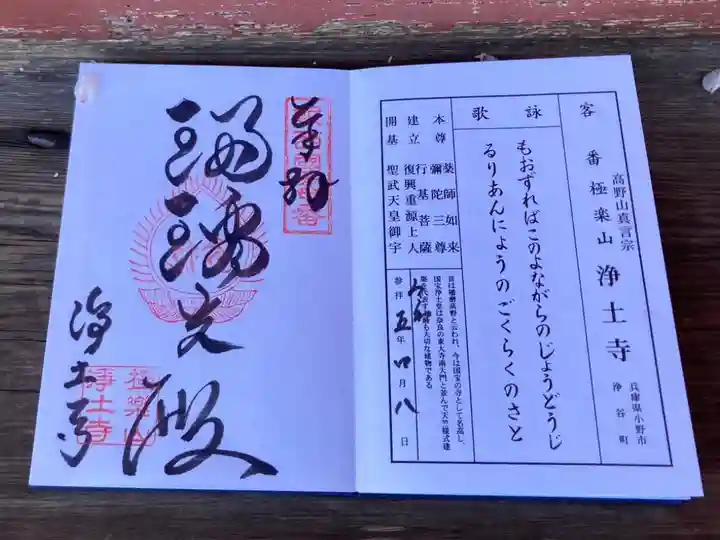 高野山真言宗
客番 極楽山 浄土寺
兵庫県小野市
浄谷町
詠歌
もおずればこのよながらのじょうどうじ
るりあんにょうのごくらくのさと
本尊 薬師如来
彌陀三尊
建立 行基菩薩
復興重源上人
開基 聖武天皇御宇
昔は播磨高野と云われ、今は国宝の寺として名高し、
国宝浄土堂は奈良の東大寺南大門と並んで天竺様式建
築を代表する最も大切な建物である
参拝 令和五年四月八日
奉拝
瑠璃光殿
浄土寺
極楽山
浄土寺